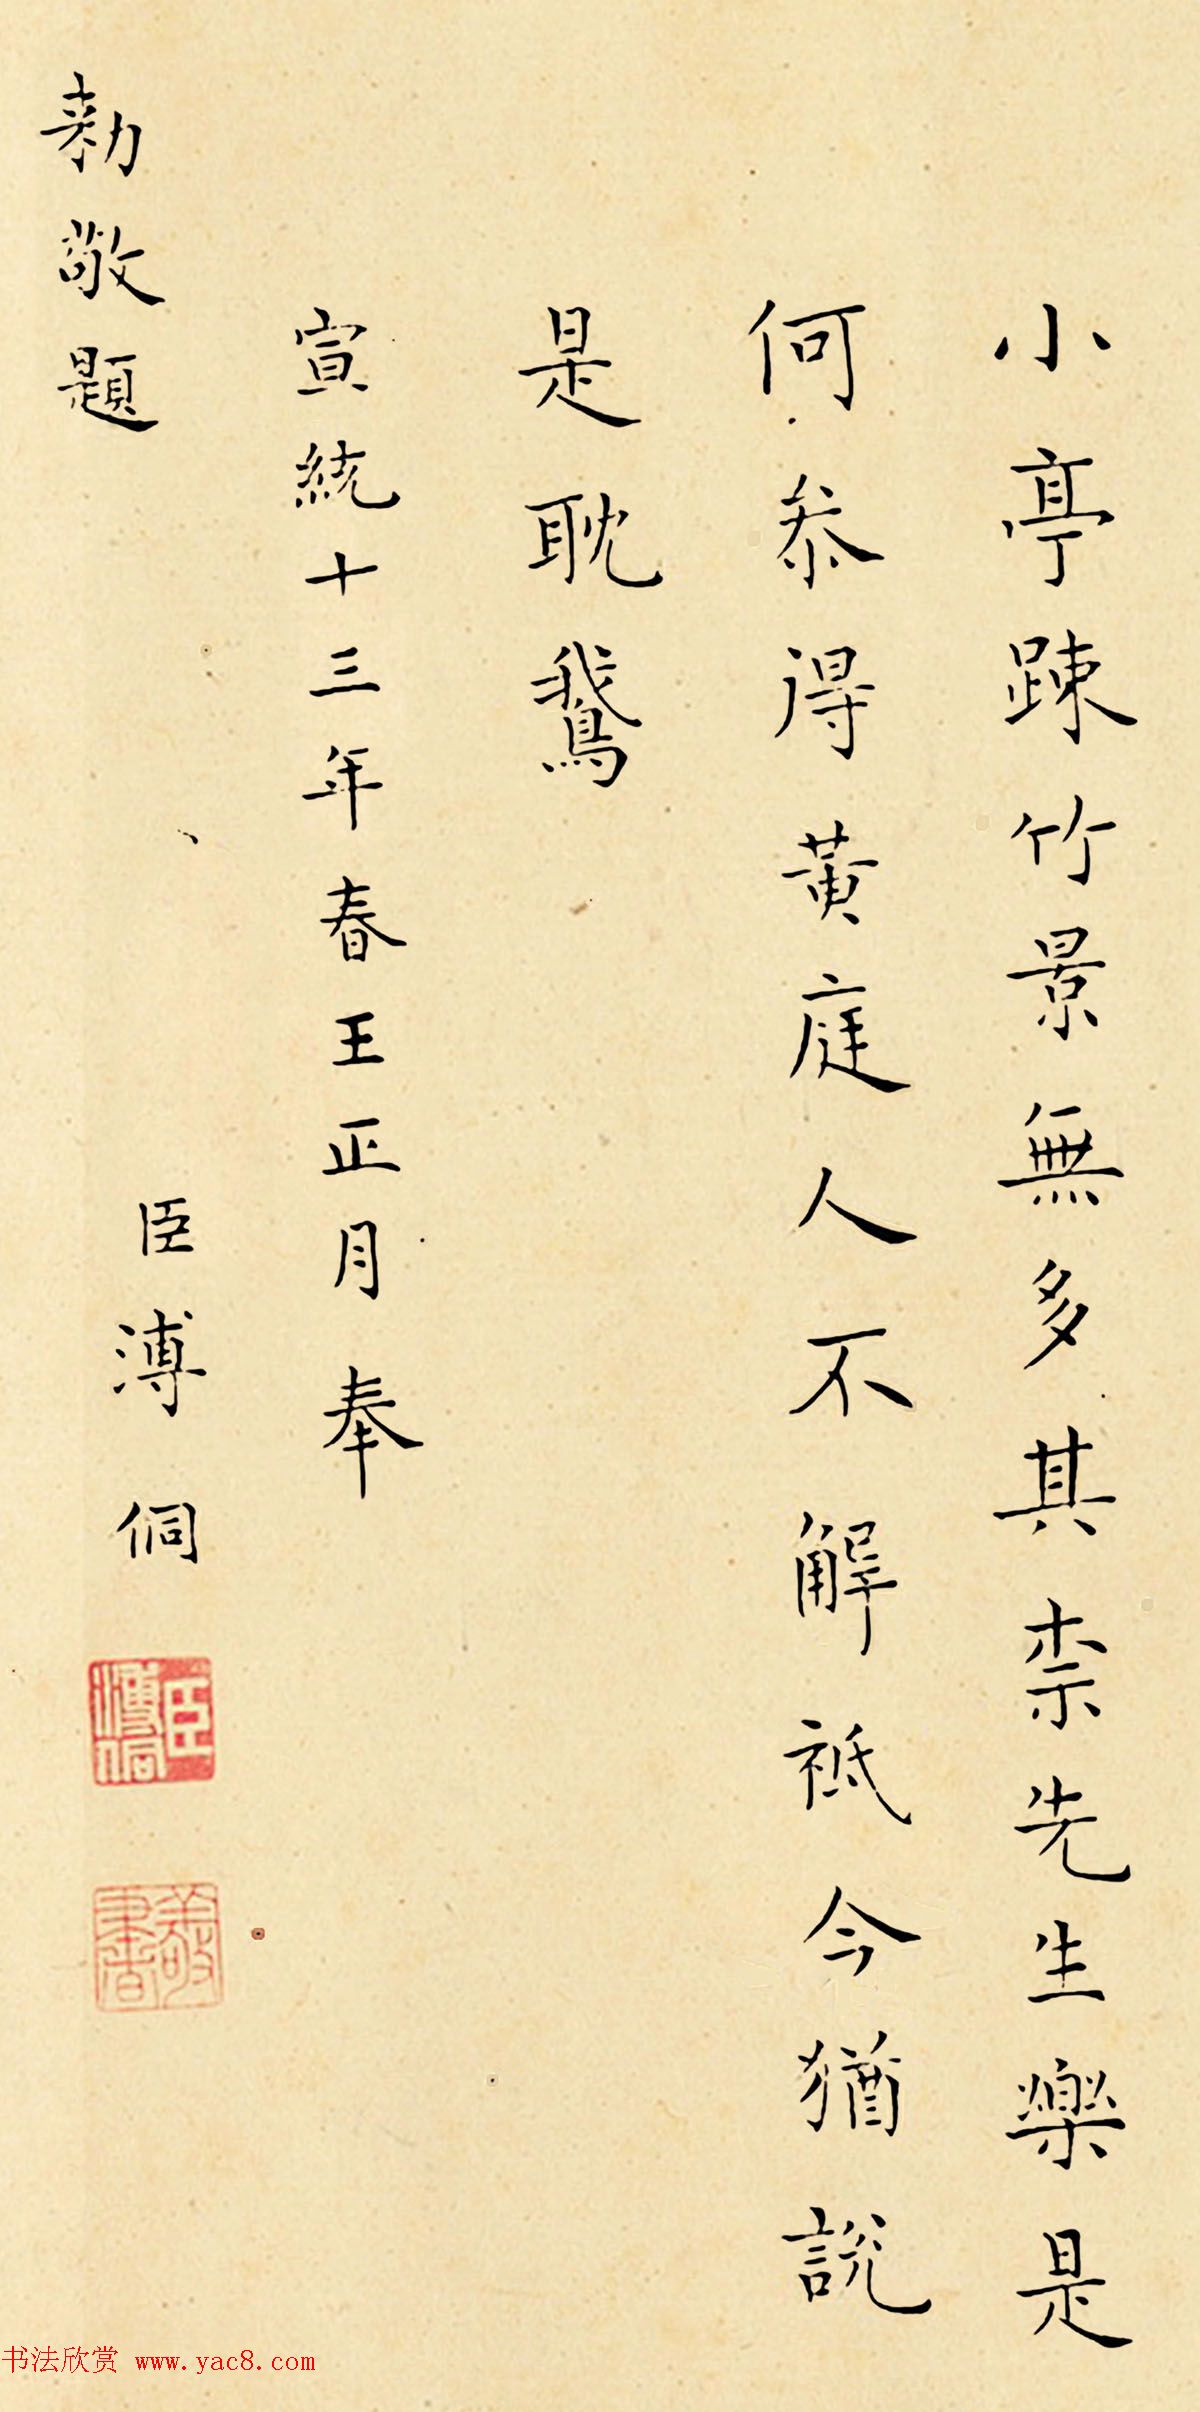 小亭踈竹景無多其柰先生樂是
何叅得黃庭人不解祗今猶說
是耽鵞
宣統十三年春王正月奉
勅敬題
臣溥侗
臣溥侗
書法欣赏 www.yac8.com